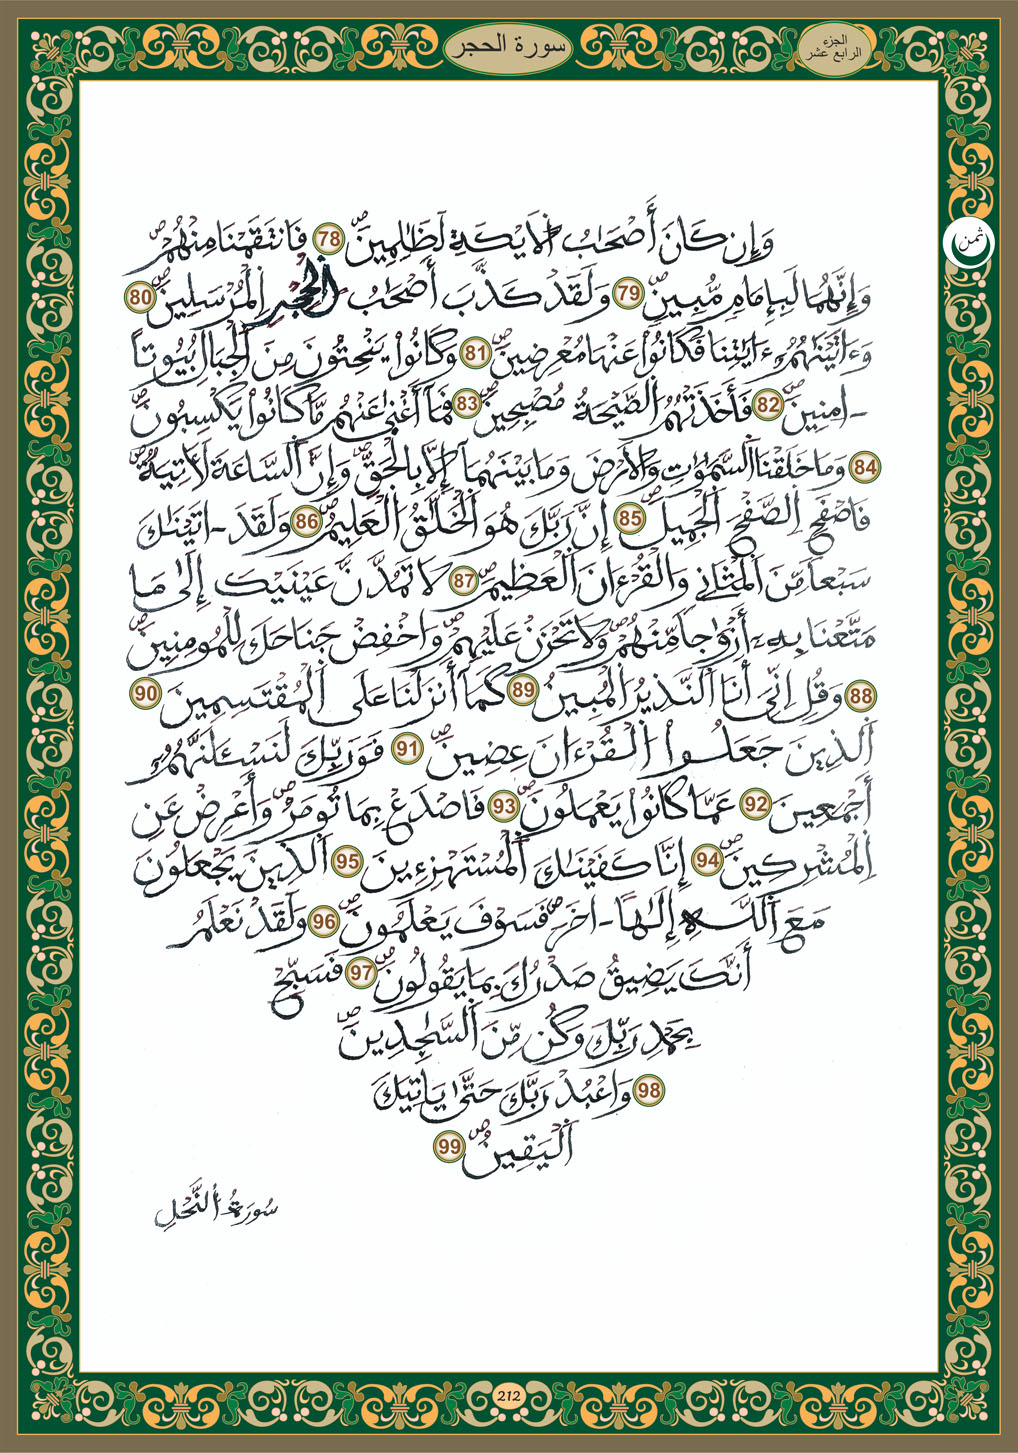 سورة الحجر
الجزء
الرابع عشر
ثمن
وَإِن كَانَ أَصْحَٰبُ اُ۬لَايْكَةِ لَظَٰلِمِينَۖ 78 فَانتَقَمْنَا مِنْهُمْۖ
وَإِنَّهُمَا لَبِإِمَامٖ مُّبِينٖۖ 79 وَلَقَدْ كَذَّبَ أَصْحَٰبُ اُ۬لْحِجْرِ اِ۬لْمُرْسَلِينَۖ 80
وَءَاتَيْنَٰهُمُۥٓ ءَايَٰتِنَا فَكَانُواْ عَنْهَا مُعْرِضِينَۖ 81 وَكَانُواْ يَنْحِتُونَ مِنَ اَ۬لْجِبَالِ بُيُوتاً
ـ​امِنِينَۖ 82 فَأَخَذَتْهُمُ اُ۬لصَّيْحَةُ مُصْبِحِينَۖ 83 فَمَآ أَغْنَىٰ عَنْهُم مَّا كَانُواْ يَكْسِبُونَۖ
84 وَمَا خَلَقْنَا اَ۬لسَّمَٰوَٰتِ وَالَارْضَ وَمَا بَيْنَهُمَآ إِلَّا بِالْحَقِّۖ وَإِنَّ اَ۬لسَّاعَةَ لَأٓتِيَةٞۖ
فَاصْفَحِ اِ۬لصَّفْحَ اَ۬لْجَمِيلَۖ 85 إِنَّ رَبَّكَ هُوَ اَ۬لْخَلَّٰقُ اُ۬لْعَلِيمُۖ 86 وَلَقَدَ ـ​اتَيْنَٰكَ
سَبْعاٗ مِّنَ اَ۬لْمَثَانِے وَالْقُرْءَانَ اَ۬لْعَظِيمَۖ 87 لَا تَمُدَّنَّ عَيْنَيْكَ إِلَىٰ مَا
مَتَّعْنَا بِهِۦٓ أَزْوَٰجاٗ مِّنْهُمْ وَلَا تَحْزَنْ عَلَيْهِمْۖ وَاخْفِضْ جَنَاحَكَ لِلْمُومِنِينَۖ
88 وَقُلِ اِنِّيَ أَنَا اَ۬لنَّذِيرُ اُ۬لْمُبِينُ 89 كَمَآ أَنزَلْنَا عَلَى اَ۬لْمُقْتَسِمِينَ 90
اَ۬لذِينَ جَعَلُواْ اُ۬لْقُرْءَانَ عِضِينَۖ 91 فَوَرَبِّكَ لَنَسْـَٔلَنَّهُمُۥٓ
أَجْمَعِينَ 92 عَمَّا كَانُواْ يَعْمَلُونَۖ 93 فَاصْدَعْ بِمَا تُومَرُۖ وَأَعْرِضْ عَنِ
اِ۬لْمُشْرِكِينَۖ 94 إِنَّا كَفَيْنَٰكَ اَ۬لْمُسْتَهْزِءِينَ 95 اَ۬لذِينَ يَجْعَلُونَ
مَعَ اَ۬للَّهِ إِلَٰهاً ـ​اخَرَۖ فَسَوْفَ يَعْلَمُونَۖ 96 وَلَقَدْ نَعْلَمُ
أَنَّكَ يَضِيقُ صَدْرُكَ بِمَا يَقُولُونَۖ 97 فَسَبِّحْ
بِحَمْدِ رَبِّكَ وَكُن مِّنَ اَ۬لسَّٰجِدِينَۖ
98 وَاعْبُدْ رَبَّكَ حَتَّىٰ يَاتِيَكَ
اَ۬لْيَقِينُۖ 99
سُورَةُ اُ۬لنَّحْلِ
212